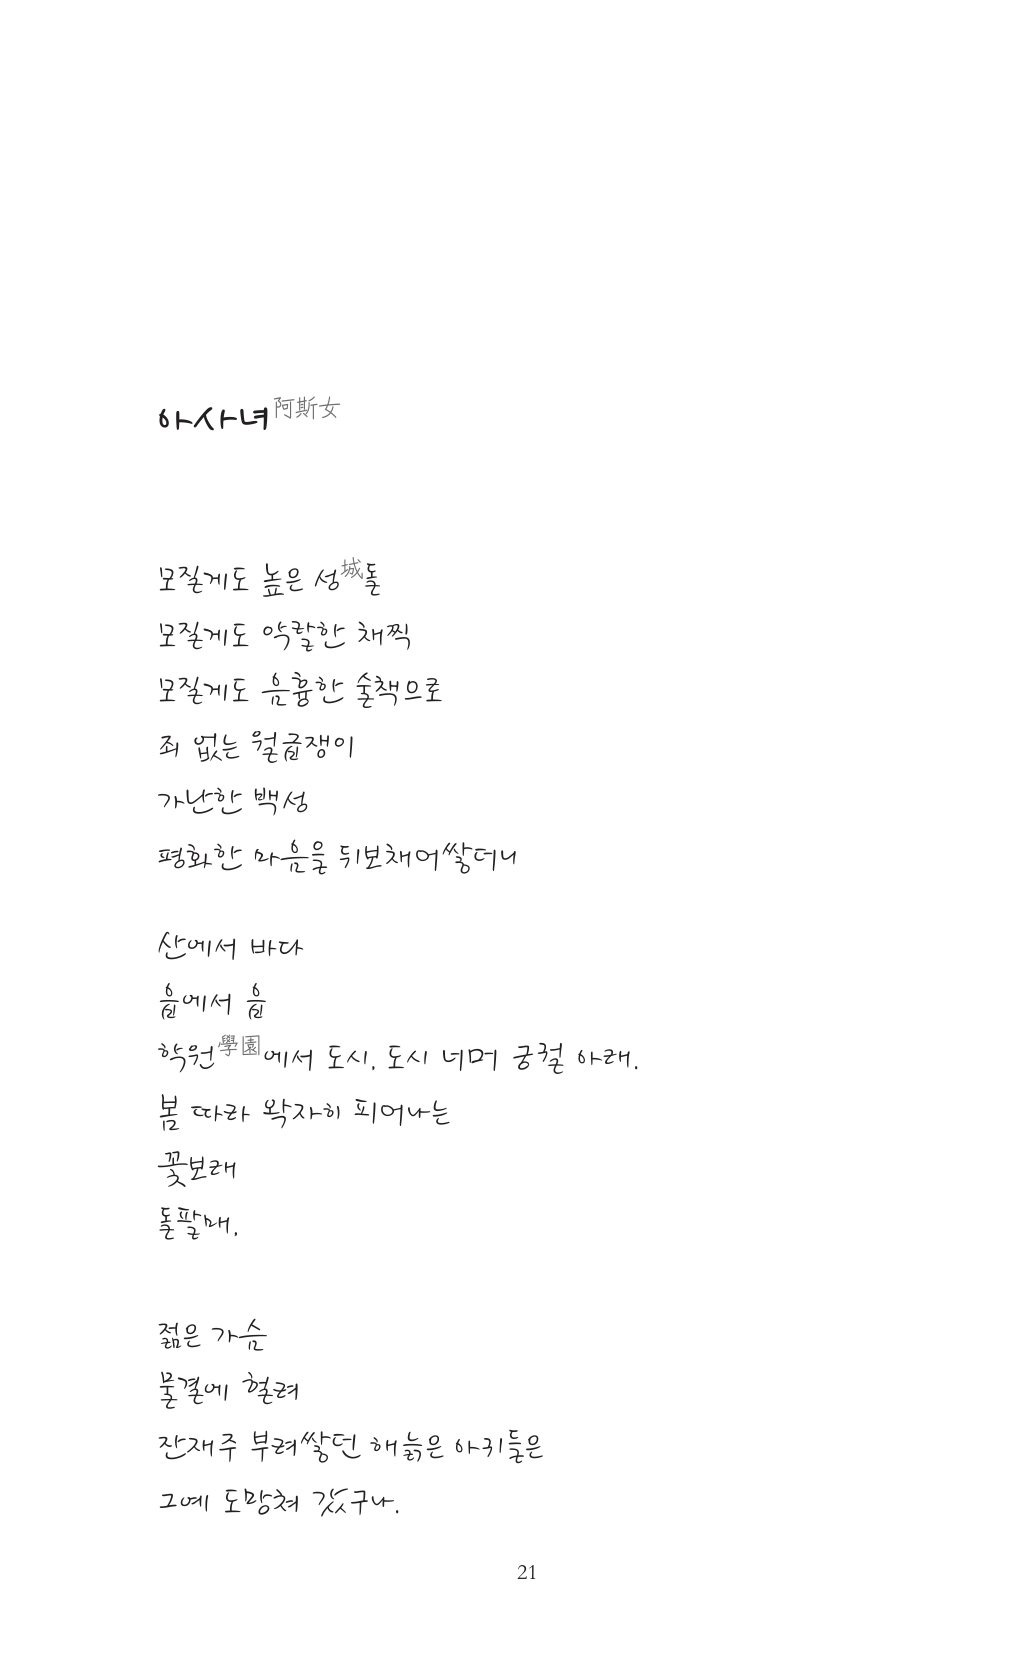 아사녀阿斯女
모질게도 높은 성城돌
모질게도 악랄한 채찍
모질게도 음흉한 술책으로
죄 없는 월급쟁이
가난한 백성
평화한 마음을 뒤보채어쌓더니
산에서 바다
읍에서 읍
학원學園에서 도시, 도시 너머 궁궐 아래.
봄 따라 왁자히 피어나는
꽃보래
돌팔매,
젊은 가슴
물결에 헐려
잔재주 부려쌓던 해늙은 아귀들은
그예 도망쳐 갔구나.
21